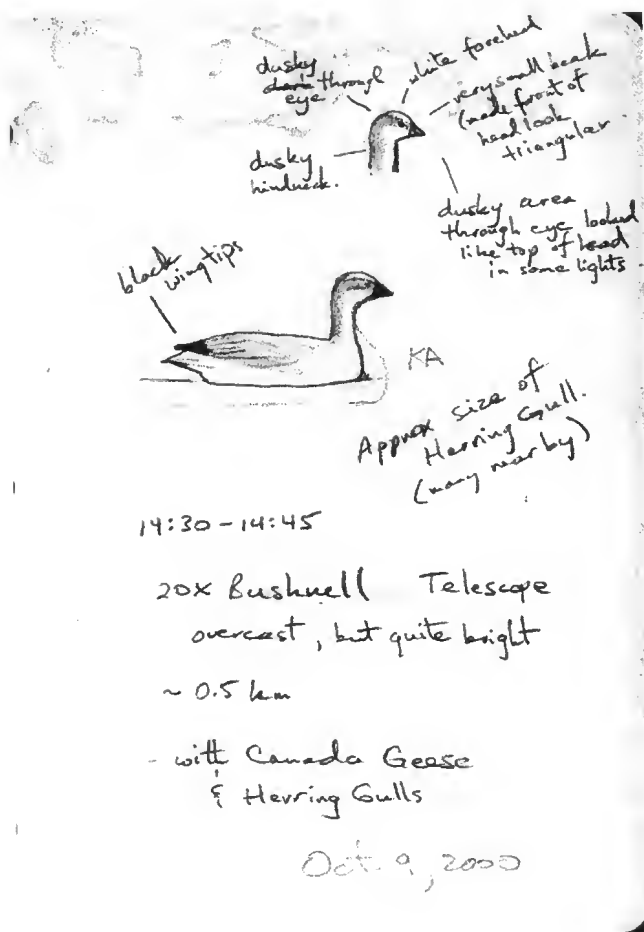 dusky
dark through
eye
white forehead
very small beak
(made front of
head look
triangular
dusky
hindneck.
dusky area
through eye looked
like top of head
in some lights
black
wingtips
KA
Approx size of
Herring Gull.
(many near by)
14:30-14:45
20x Bushnell Telescope
overcast, but quite bright
~ 0.5 km
- with Canada Geese
& Herring Gulls
Oct. 9, 2000